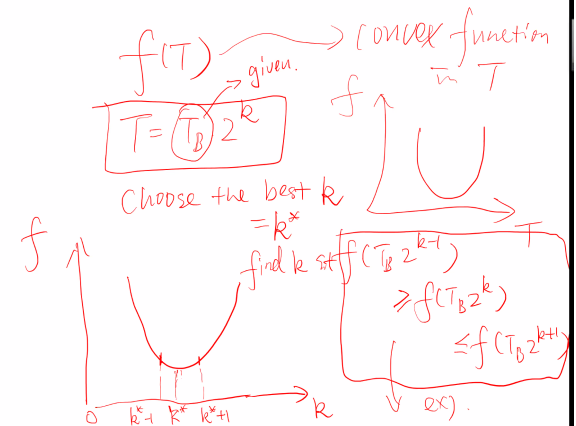 f(T) → convex function
in T
given.
T = T_B 2^k
f
T
Choose the best k
= k*
find k st f(T_B 2^{k-1})
≥ f(T_B 2^k)
≤ f(T_B 2^{k+1})
ex).
f
0 k*-1 k* k*+1 k